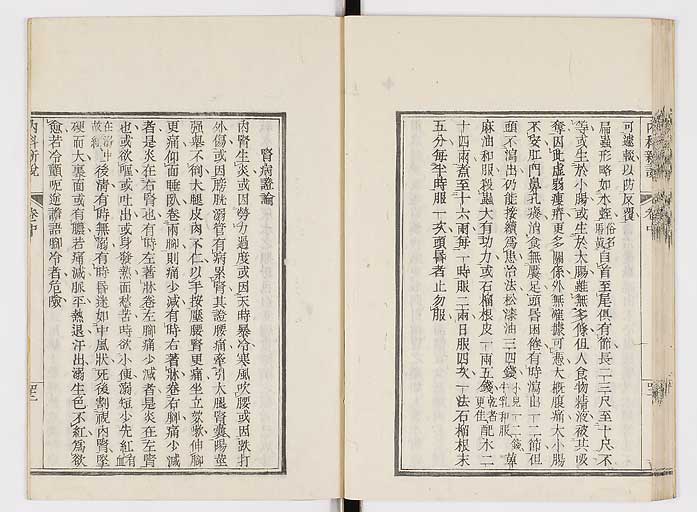 可遽輟以防反覆
扁蟲形略如水蛭俗名馬黃自首至尾俱有節長二三尺至十尺不
等或生於小腸或生於大腸雖無多條但人食物精液被其吸
奪因此虛弱瘦瘠更多關係外無確據可憑大概腹痛大小腸
不安肛門鼻孔痕消食無饜足頭脣困倦有時瀉出一二節但
頭不瀉出仍能接續為患治法松漆油三四錢小兒一二錢草
麻油和服殺蟲大有功力或石榴根皮一兩五錢乾者更佳配水二
十四兩煮至十六兩每一時服二兩日服四次一法石榴根末
五分每半時服一次頭脣者止勿服
腎病證論
內腎生炎或因勞力過度或因天時暴冷寒風吹腰或因跌打
外傷或因膀胱溺管有病累腎其證腰痛牽引大腿腎囊陽莖
強舉不徇大腿皮肉不仁以手按壓腰腎更痛坐立欬嗽伸腳
更痛仰面睡臥卷兩腳則痛少減有時右著牀卷右腳痛少減
者是炎在右腎也有時左著牀卷左腳痛少減者是炎在左腎
也或欲嘔或吐出或身發熱面愁苦時欲小便溺短少先紅有血
在溺中故紅後清有時無溺有時昏迷如中風狀死後割視內腎堅
硬而大裏面或有膿若痛減脈平熱退汗出溺生色不紅為欲
愈若冷顫呃逆譫語腳冷者危險
內科新說
卷中